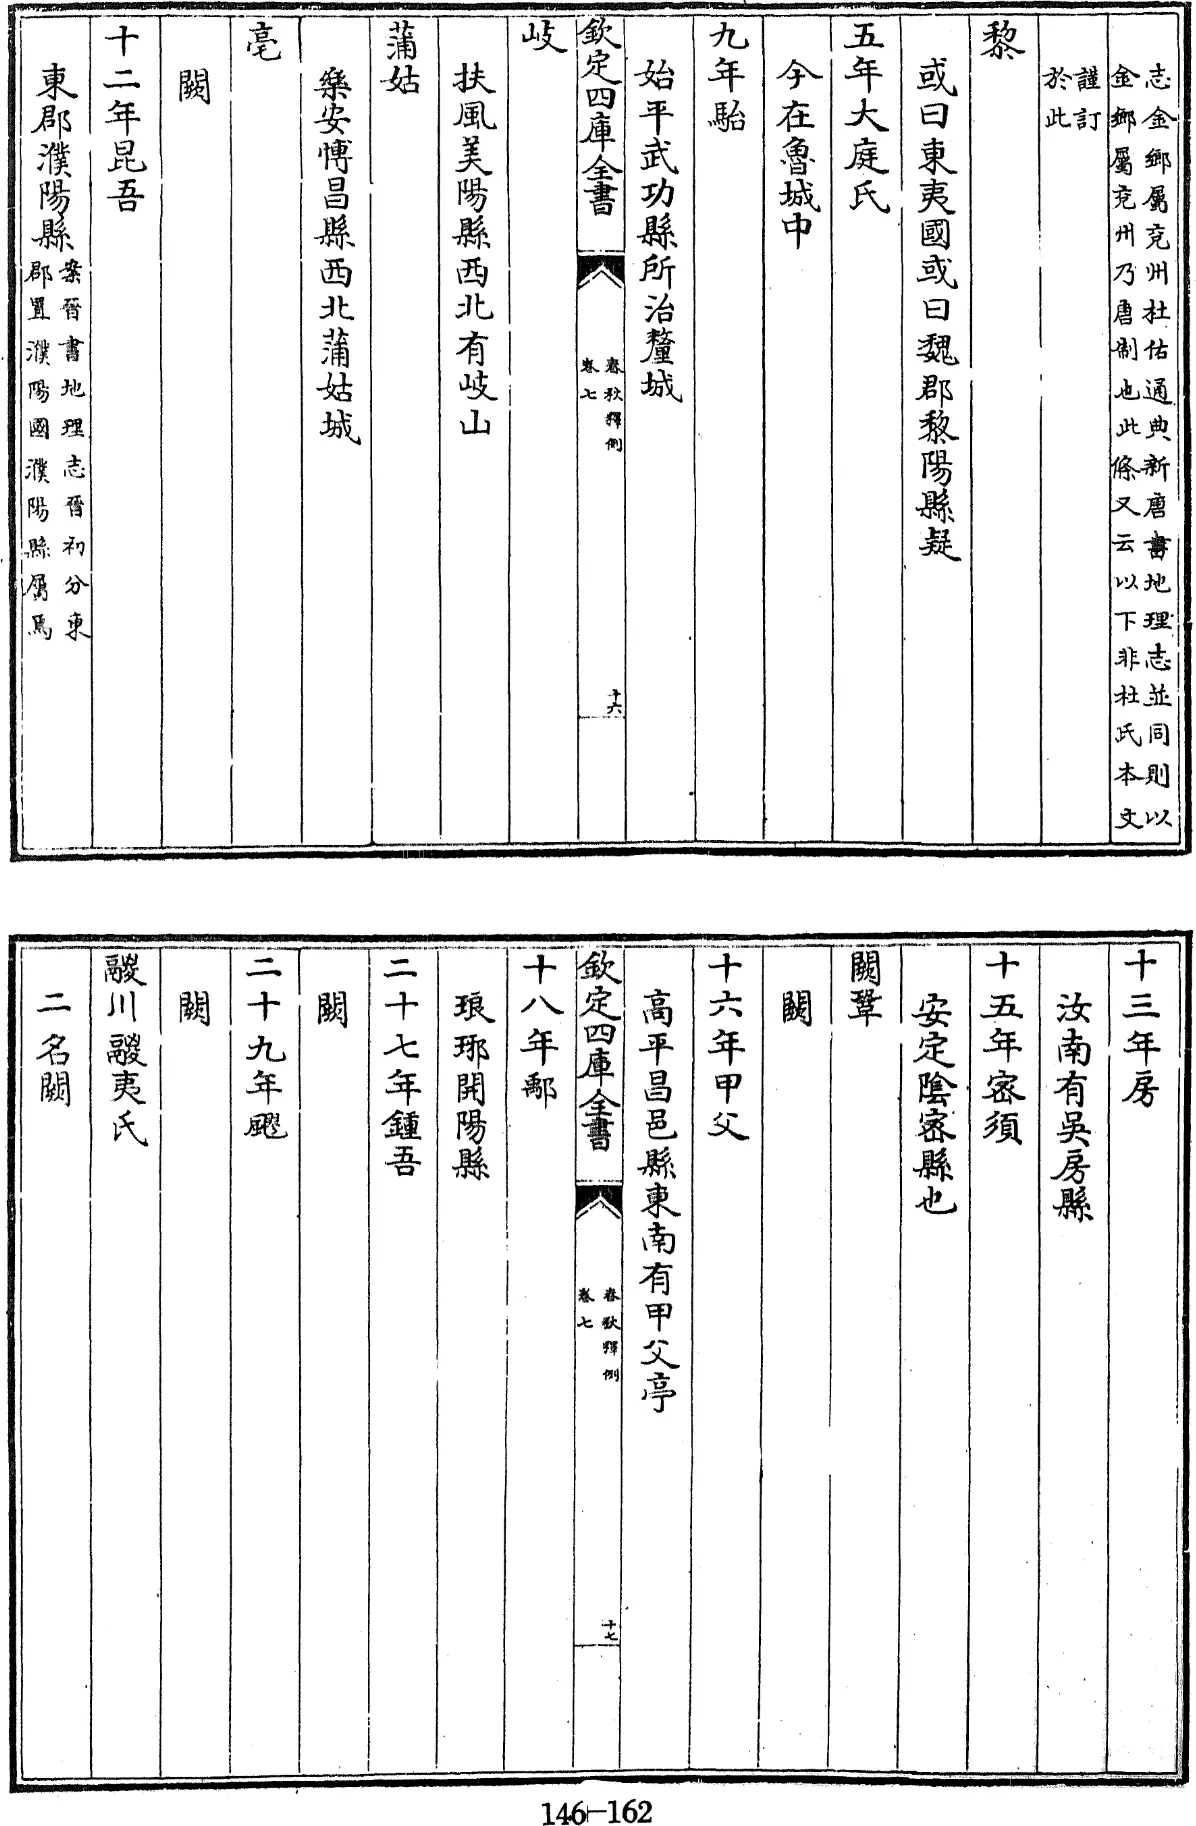 志金鄉屬兖州杜佑通典新唐書地理志並同則以
金鄉屬兖州乃唐制也此條又云以下非杜氏本文
謹訂
於此
黎
或曰東夷國或曰魏郡黎陽縣疑
五年大庭氏
今在魯城中
九年駘
始平武功縣所治釐城
欽定四庫全書
春秋釋例
卷七
十六
岐
扶風美陽縣西北有岐山
蒲姑
樂安愽昌縣西北蒲姑城
亳
闕
十二年昆吾
東郡濮陽縣
案晉書地理志晉初分東
郡置濮陽國濮陽縣屬焉
十三年房
汝南有吳房縣
十五年密須
安定陰密縣也
闕鞏
闕
十六年甲父
高平昌邑縣東南有甲父亭
欽定四庫全書
春秋釋例
卷七
十七
十八年鄅
琅琊開陽縣
二十七年鍾吾
闕
二十九年飂
闕
鬷川鬷夷氏
二名闕
146-162